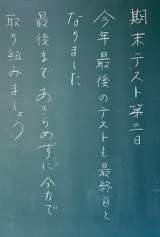 期末テスト第三日
今年最後のテストも最終日と
なりました
最後まであきらめずに全力で
取り組みましょう